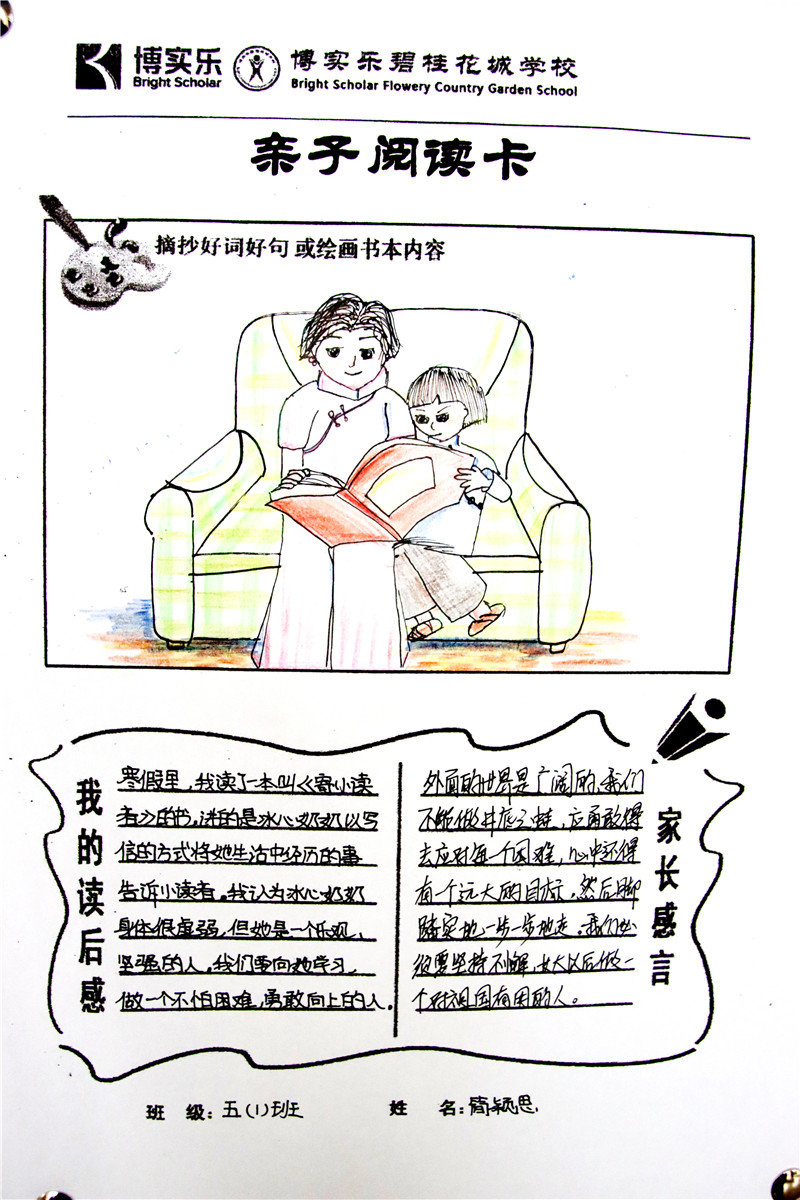 博实乐
Bright Scholar
博实乐碧桂花城学校
Bright Scholar Flowery Country Garden School
亲子阅读卡
摘抄好词好句 或绘画书本内容
我的读后感
寒假里，我读了一本叫《寄小读
者》的书，讲的是冰心奶奶以写
信的方式将她生活中经历的事
告诉小读者。我认为冰心奶奶
身体很虚弱，但她是一个乐观、
坚强的人。我们要向她学习，
做一个不怕困难，勇敢向上的人。
家长感言
外面的世界是广阔的，我们
不能做井底之蛙，应勇敢得
去应对每个困难，心中还得
有一个远大的目标，然后脚
踏实地一步一步地走。我们必
须要坚持不懈，长大以后做一
个对祖国有用的人。
班 级：五(1)班
姓 名：简颖思